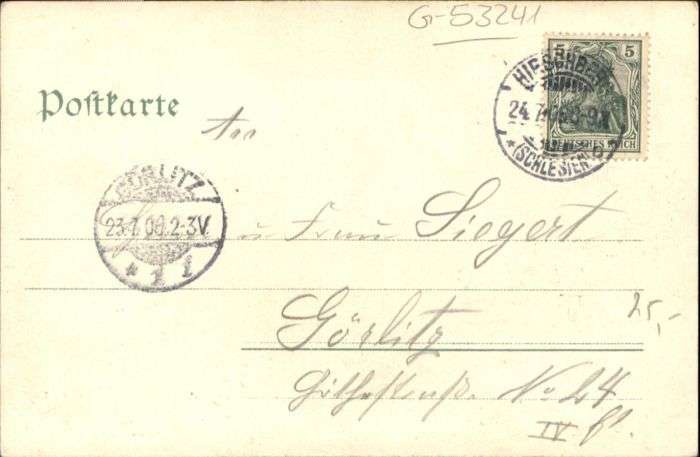 G-53241
5 5
DEUTSCHES REICH
HIRSCHBERG
24.7.06.8-9N
* (SCHLESIEN)
Postkarte
GÖRLITZ
23.7.06.2-3V.
* 1 1
u Frau Siegert
Görlitz
25,-
No 24
IV